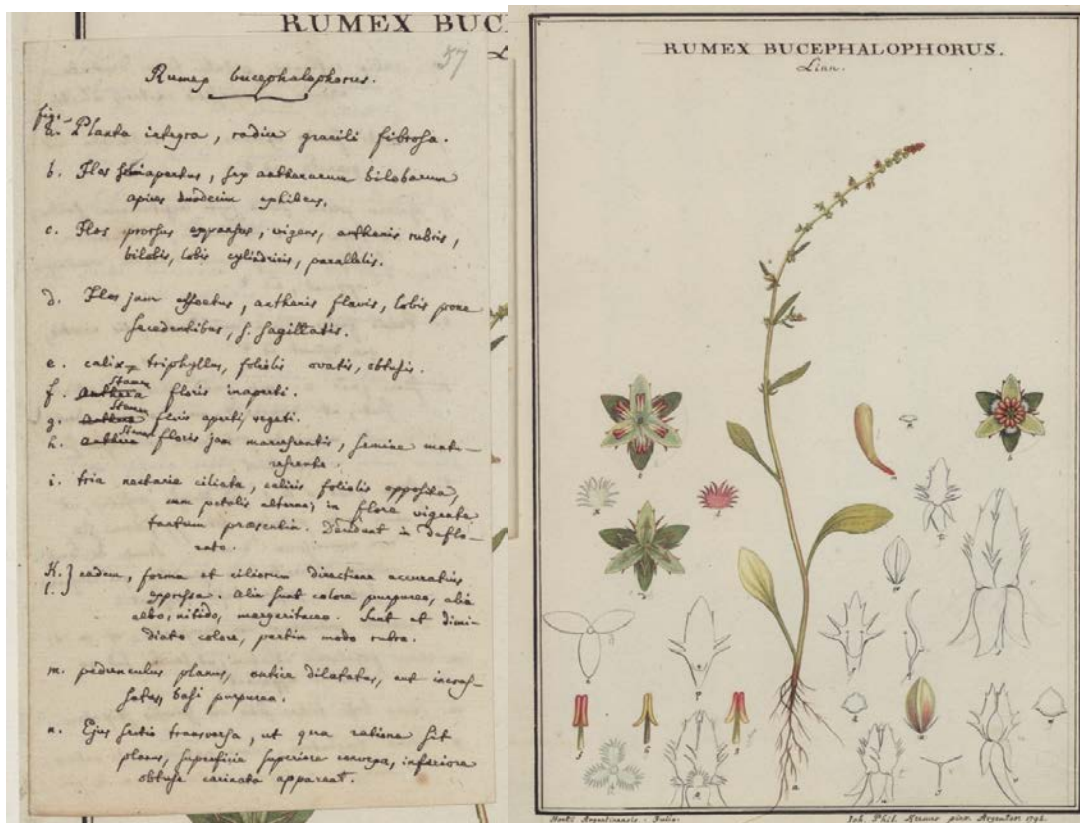 RUMEX BUC
L
57
Rumex bucephalophorus.
fig.
a. Planta integra, radice gracili fibrosa.
b. Flos semiapertus, sex antherarum bilobarum
apices duodecim exhibens.
c. Flos prorsus expansus, vigens, antheris rubris,
bilobis, lobis cylindricis, parallelis.
d. Flos jam effoetus, antheris flavis, lobis prone
secedentibus, s. sagittatis.
e. calix triphyllus, foliolis ovatis, obtusis.
f. anthera Stamen floris inaperti.
g. anthera Stamen floris aperti, vegeti.
h. anthera Stamen floris jam marcescentis, semine matu-
rescente.
i. tria nectaria ciliata, calicis foliolis opposita,
cum petalis alterna, in flore vigente
tantum praesentia. Decidunt in deflo-
rato.
K.
l. } eadem, forma et ciliorum directione accuratius
expressa. Alia sunt colore purpureo, alia
albo, nitido, margaritaceo. Sunt et dimi-
diato colore, partim modo rubro.
m. pedunculus planus, antice dilatatus, aut incras-
satus, basi purpurea.
n. Ejus sectio transversa, ut qua ratione sit
planus, superficie superiore convexa, inferiore
obtuse carinata appareat.
RUMEX BUCEPHALOPHORUS.
Linn.
Horti Argentinensis. Julio.
Joh. Phil. pinx. Argentor. 179